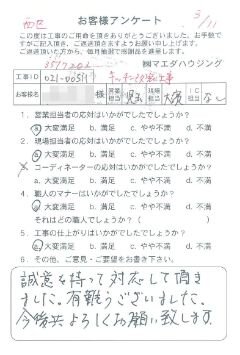 西区
3/11
お客様アンケート
この度は工事のご用命を頂きありがとうございました。お手数で
すがご記入頂き、ご返送頂きますようお願い申し上げます。
ご返送頂いた方から、毎月抽選で図書券を進呈します。
㈱マエダハウジング
工事ID
お客様名
様
営業担当
現場担当
IC担当
なし
1. 営業担当者の応対はいかがでしたでしょうか?
a. 大変満足 b. 満足 c. やや不満 d. 不満
2. 現場担当者の応対はいかがでしたでしょうか?
a. 大変満足 b. 満足 c. やや不満 d. 不満
3. コーディネーターの応対はいかがでしたでしょうか?
a. 大変満足 b. 満足 c. やや不満 d. 不満
4. 職人のマナーはいかがでしたでしょうか?
a. 大変満足 b. 満足 c. やや不満 d. 不満
それはどの職人でしょうか? ( )
5. 工事の仕上がりはいかがでしたでしょうか?
a. 大変満足 b. 満足 c. やや不満 d. 不満
6. その他、ご意見・ご要望をお書き下さい。
誠意を持って対応して頂き
ました。有難うございました。
今後共よろしくお願い致します。